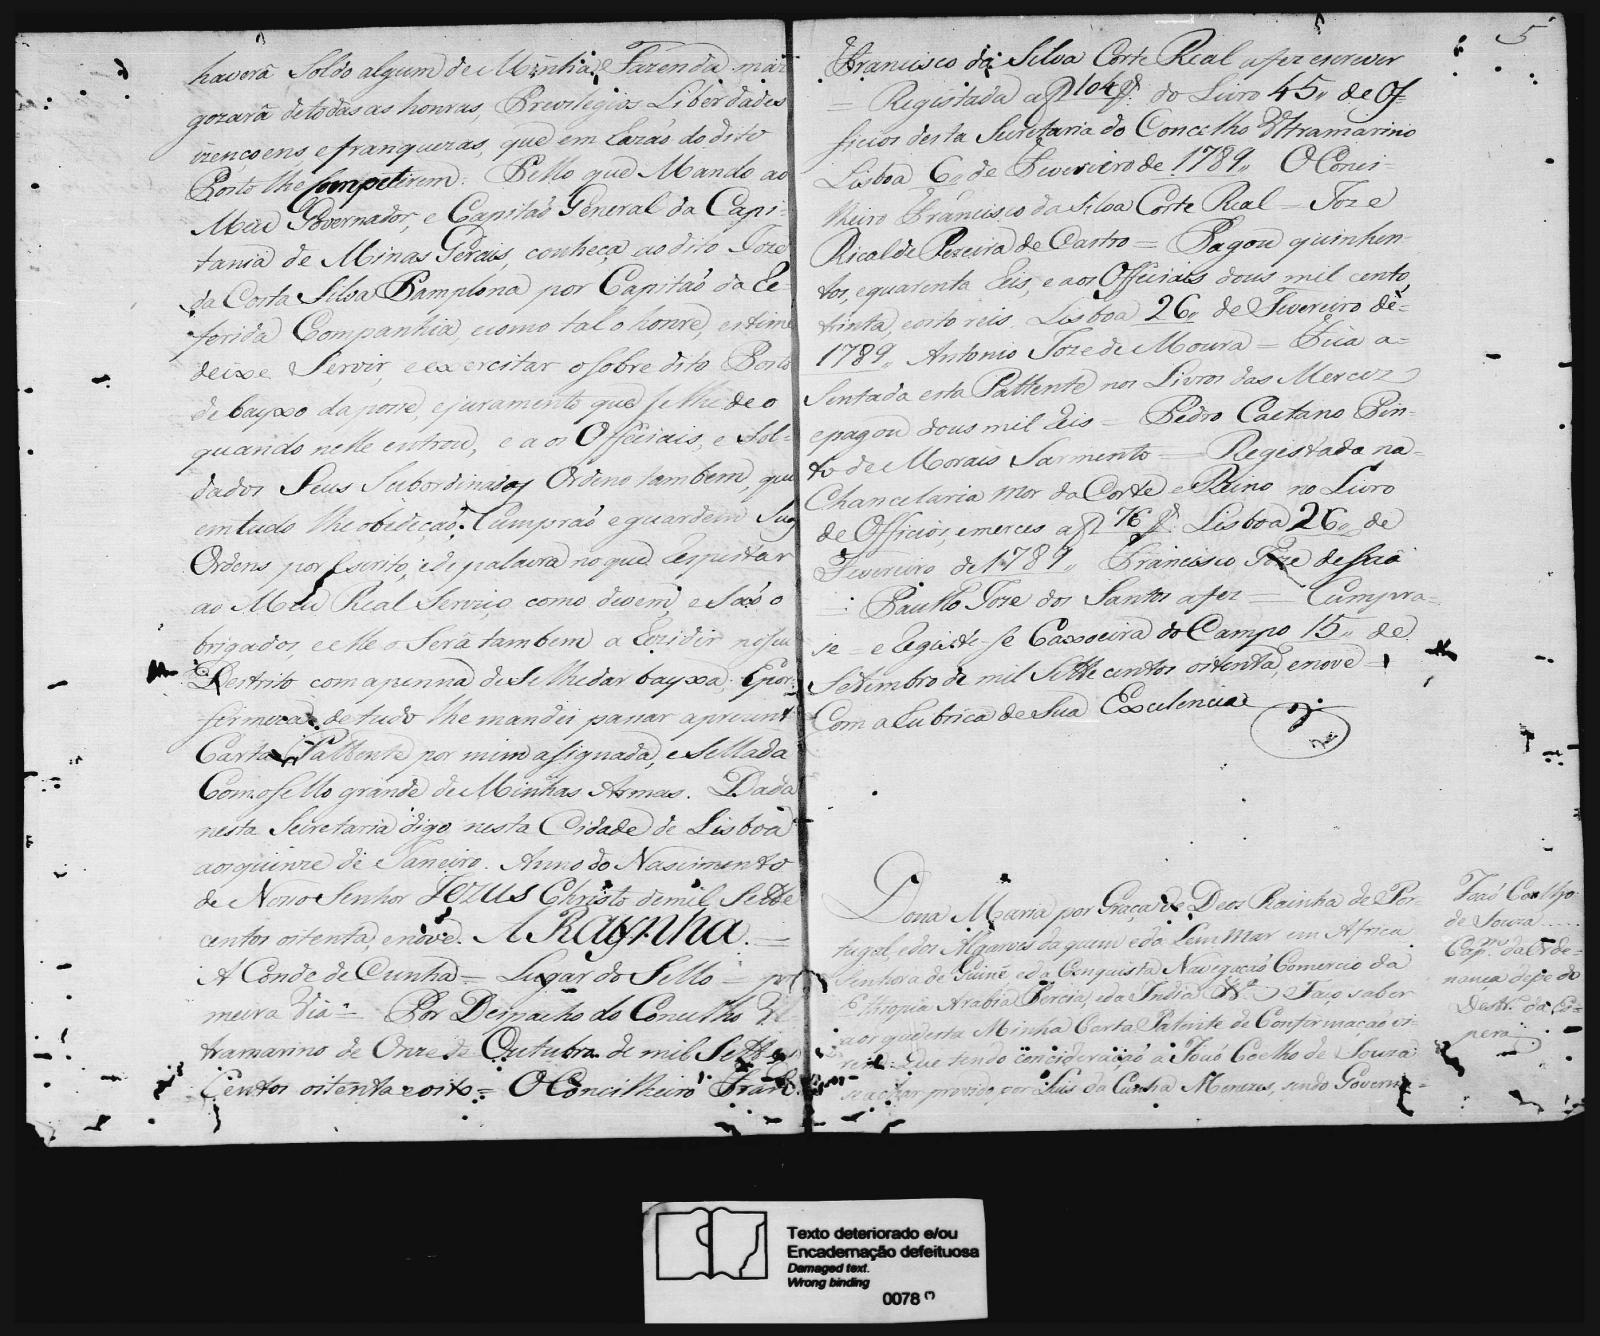 haverá Soldo algum de Minha Fazenda mas
gozará de todas as honras, Previlegios Liberdades
izencoens, e franquezas, que em Razaõ do dito
Posto lhe Competirem. Pello que Mando ao
Meu Governador, e Capitaõ General da Capi-
tania de Minas Geraes, conheça ao dito Joze
da Costa Silva Pamplona por Capitaõ da Re-
ferida Companhia, e como tal o honre, estime
deixe Servir, e exercitar o sobre dito Posto
debayxo da posse, e juramento que se lhe deo
quando nelle entrou, e aos Officiais, e Sol-
dados Seus Subordinados Ordeno tambem, que
em tudo lhe obedeçaõ. Cumpraõ e guardem Suas
Ordens por Escrito, e de palavra no que Respeitar
ao Meu Real Serviço, como devem, e Saõ o
brigados, e elle o Será tambem a Rezidir no seu
Destrito com a penna de Se lhe dar bayxa. E por
firmeza de tudo lhe mandei passar a prezente
Carta Pattente por mim asignada, e Sellada
Com o sello grande de Minhas Armas. Dada
nesta Secretaria digo nesta Cidade de Lisboa
aos quinze de Janeiro. Anno do Nascimento
de Nosso Senhor Jezus Christo de mil Sette
centos oitenta, e nove. A Raynha. =
A Conde de Cunha = Lugar do Sello = pri
meira Via = Por Despacho do Concelho Ul
tramarino de Onze de Outubro de mil Sette
Centos oitenta e oito = O Concilheiro Fran
5
Francisco da Silva Corte Real a fez escrever
= Registada a f 104 do Livro 45 de Of
ficios desta Secretaria do Concelho Ultramarino
Lisboa 6 de Fevereiro de 1789 O Conci-
lheiro Francisco da Silva Corte Real = Joze
Ricalde Pereira de Castro = Pagou quinhen-
tos, e quarenta Reis, e aos Officiais dous mil cento,
trinta, e oito reis. Lisboa 26 de Fevereiro de =
1789 Antonio Joze de Moura = Fica a =
Sentada esta Pattente nos Livros das Merces
e pagou dous mil Reis = Pedro Caetano Pin-
to de Morais Sarmento = Registada na-
Chancelaria mor da Corte e Reino no Livro
de Officios, e merces a f 76 Lisboa 26 de
Fevereiro de 1789 Francisco Joze de
= Paullo Joze dos Santos a fez = Cumpra-
se = e Registe-se Caxoeira do Campo 15 de
Setimbro de mil Sette centos oitenta, e nove =
Com a Rubrica de Sua Excelencia
Dona Maria por Graça de Deos Rainha de Por-
tugal, e dos Algarves da quem e da Lem Mar em Africa
Senhora de Guiné e da Conquista Navegaçaõ Comercio da
Ethiopia Arabia Percia, e da India &.ª Faço saber
aos que esta Minha Carta Patente de Confirmaçaõ vi-
rem: Que tendo concideraçaõ a Joaõ Coelho de Souza
se achar provido por Luis da Cunha Menezes, sendo Governa-
Joaõ Coelho
de Souza.....
Cap.m da Orde-
nança de pe do
Destr. da
Texto deteriorado e/ou
Encadernação defeituosa
Damaged text.
Wrong binding
0078